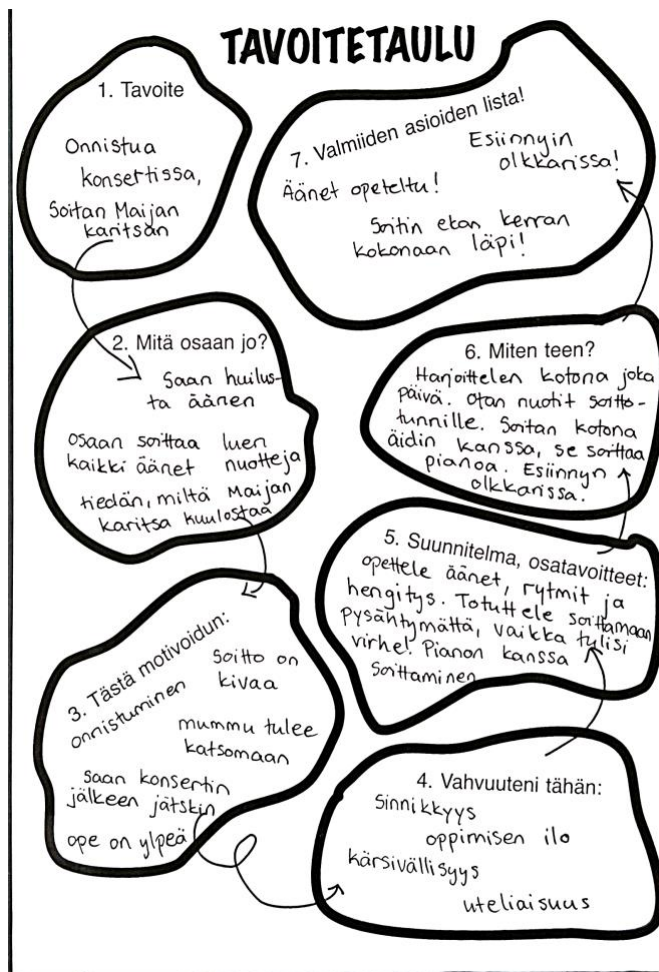 TAVOITETAULU
1. Tavoite
Onnistua
konsertissa,
Soitan Maijan
karitsan
2. Mitä osaan jo?
Saan huilus-
ta äänen
osaan soittaa
kaikki äänet
luen
nuotteja
tiedän, miltä Maijan
karitsa kuulostaa
3. Tästä motivoidun:
onnistuminen
Soitto on
kivaa
mummu tulee
katsomaan
saan konsertin
jälkeen jätskin
ope on ylpeä
4. Vahvuuteni tähän:
sinnikkyys
oppimisen ilo
kärsivällisyys
uteliaisuus
5. Suunnitelma, osatavoitteet:
opettele äänet, rytmit ja
hengitys. Totuttele soittamaan
pysähtymättä, vaikka tulisi
virhe! Pianon kanssa
soittaminen
6. Miten teen?
Harjoittelen kotona joka
päivä. Otan nuotit soitto-
tunnille. Soitan kotona
äidin kanssa, se soittaa
pianoa. Esiinnyn
olkkarissa.
7. Valmiiden asioiden lista!
Esiinnyin
olkkarissa!
Äänet opeteltu!
Soitin ekan kerran
kokonaan läpi!